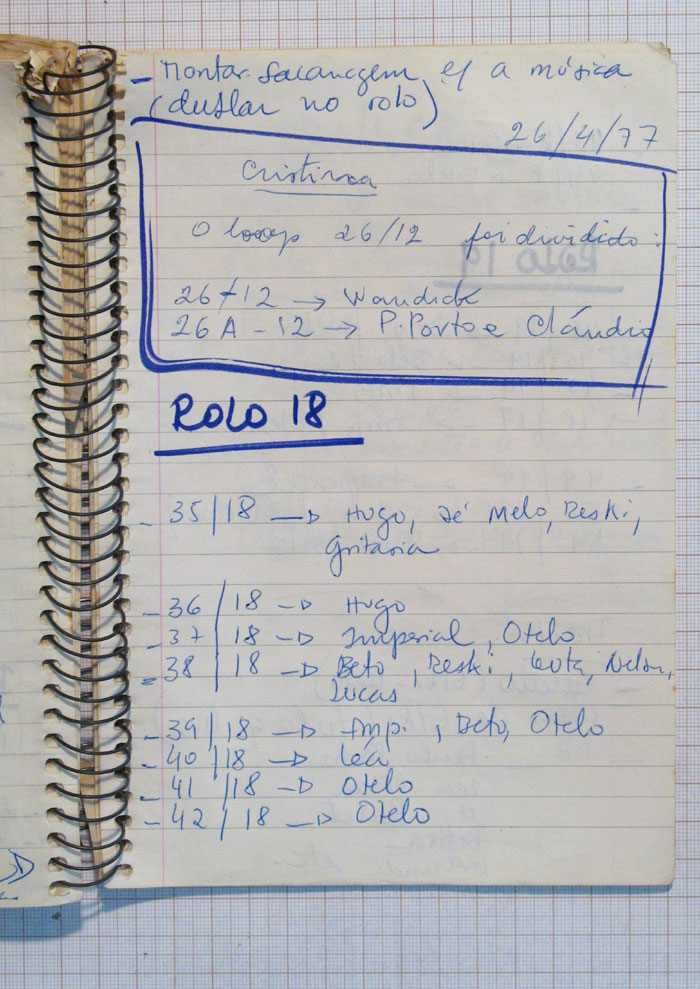 - Montar sacanagem c/ a música
(dublar no rolo)
26/4/77
Cristina
O loop 26/12 foi dividido:
26-12 → Wandick
26A-12 → P. Porto e Cláudio
ROLO 18
- 35/18 → Hugo, Zé Melo, Reski,
gritaria
- 36/18 → Hugo
- 37/18 → Imperial, Otelo
- 38/18 → Beto, Reski, Guta, Nelson,
Lucas
- 39/18 → Imp., Beto, Otelo
- 40/18 → Léa
- 41/18 → Otelo
- 42/18 → Otelo